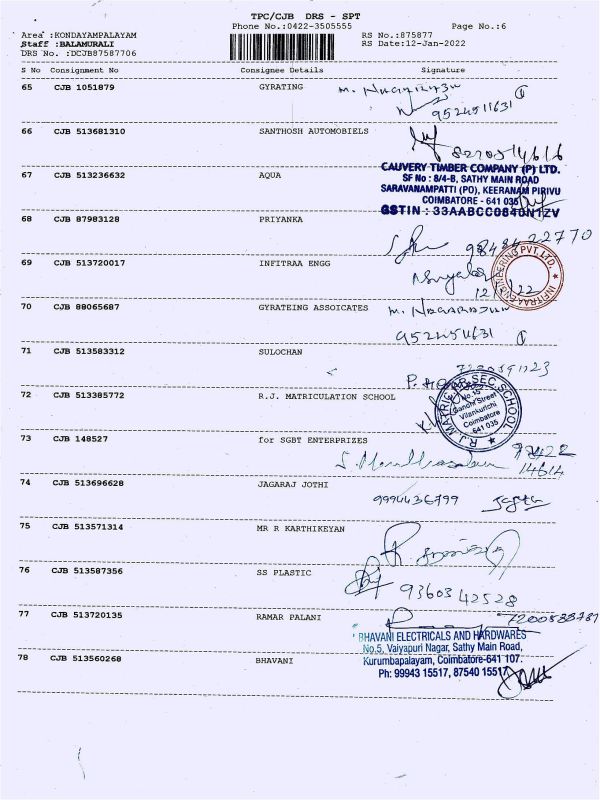 TPC/CJB DRS - SPT
Phone No.:0422-3505555 Page No.:6
Area :KONDAYAMPALAYAM RS No.:875877
Staff :BALAMURALI RS Date:12-Jan-2022
DRS No. :DCJB87587706
S No Consignment No Consignee Details Signature
65 CJB 1051879 GYRATING
9524511631
66 CJB 513681310 SANTHOSH AUTOMOBIELS
67 CJB 513236632 AQUA
CAUVERY TIMBER COMPANY (P) LTD.
SF No : 8/4-B, SATHY MAIN ROAD
SARAVANAMPATTI (PO), KEERANAM PIRIVU
COIMBATORE - 641 035
GSTIN : 33AABCC0840N1ZV
68 CJB 87983128 PRIYANKA
69 CJB 513720017 INFITRAA ENGG
INFITRAA ENGINEERING PVT. LTD.
70 CJB 88065687 GYRATEING ASSOICATES
71 CJB 513583312 SULOCHAN
72 CJB 513385772 R.J. MATRICULATION SCHOOL
R.J. MATRIC HR. SEC. SCHOOL
No.15
Gandhi Street
Vilankurichi
Coimbatore
641 035
73 CJB 148527 for SGBT ENTERPRIZES
14614
74 CJB 513696628 JAGARAJ JOTHI
9994436799
75 CJB 513571314 MR R KARTHIKEYAN
76 CJB 513587356 SS PLASTIC
93603 42528
77 CJB 513720135 RAMAR PALANI
7200583781
78 CJB 513560268 BHAVANI
BHAVANI ELECTRICALS AND HARDWARES
No.5, Vaiyapuri Nagar, Sathy Main Road,
Kurumbapalayam, Coimbatore-641 107.
Ph: 99943 15517, 87540 15517